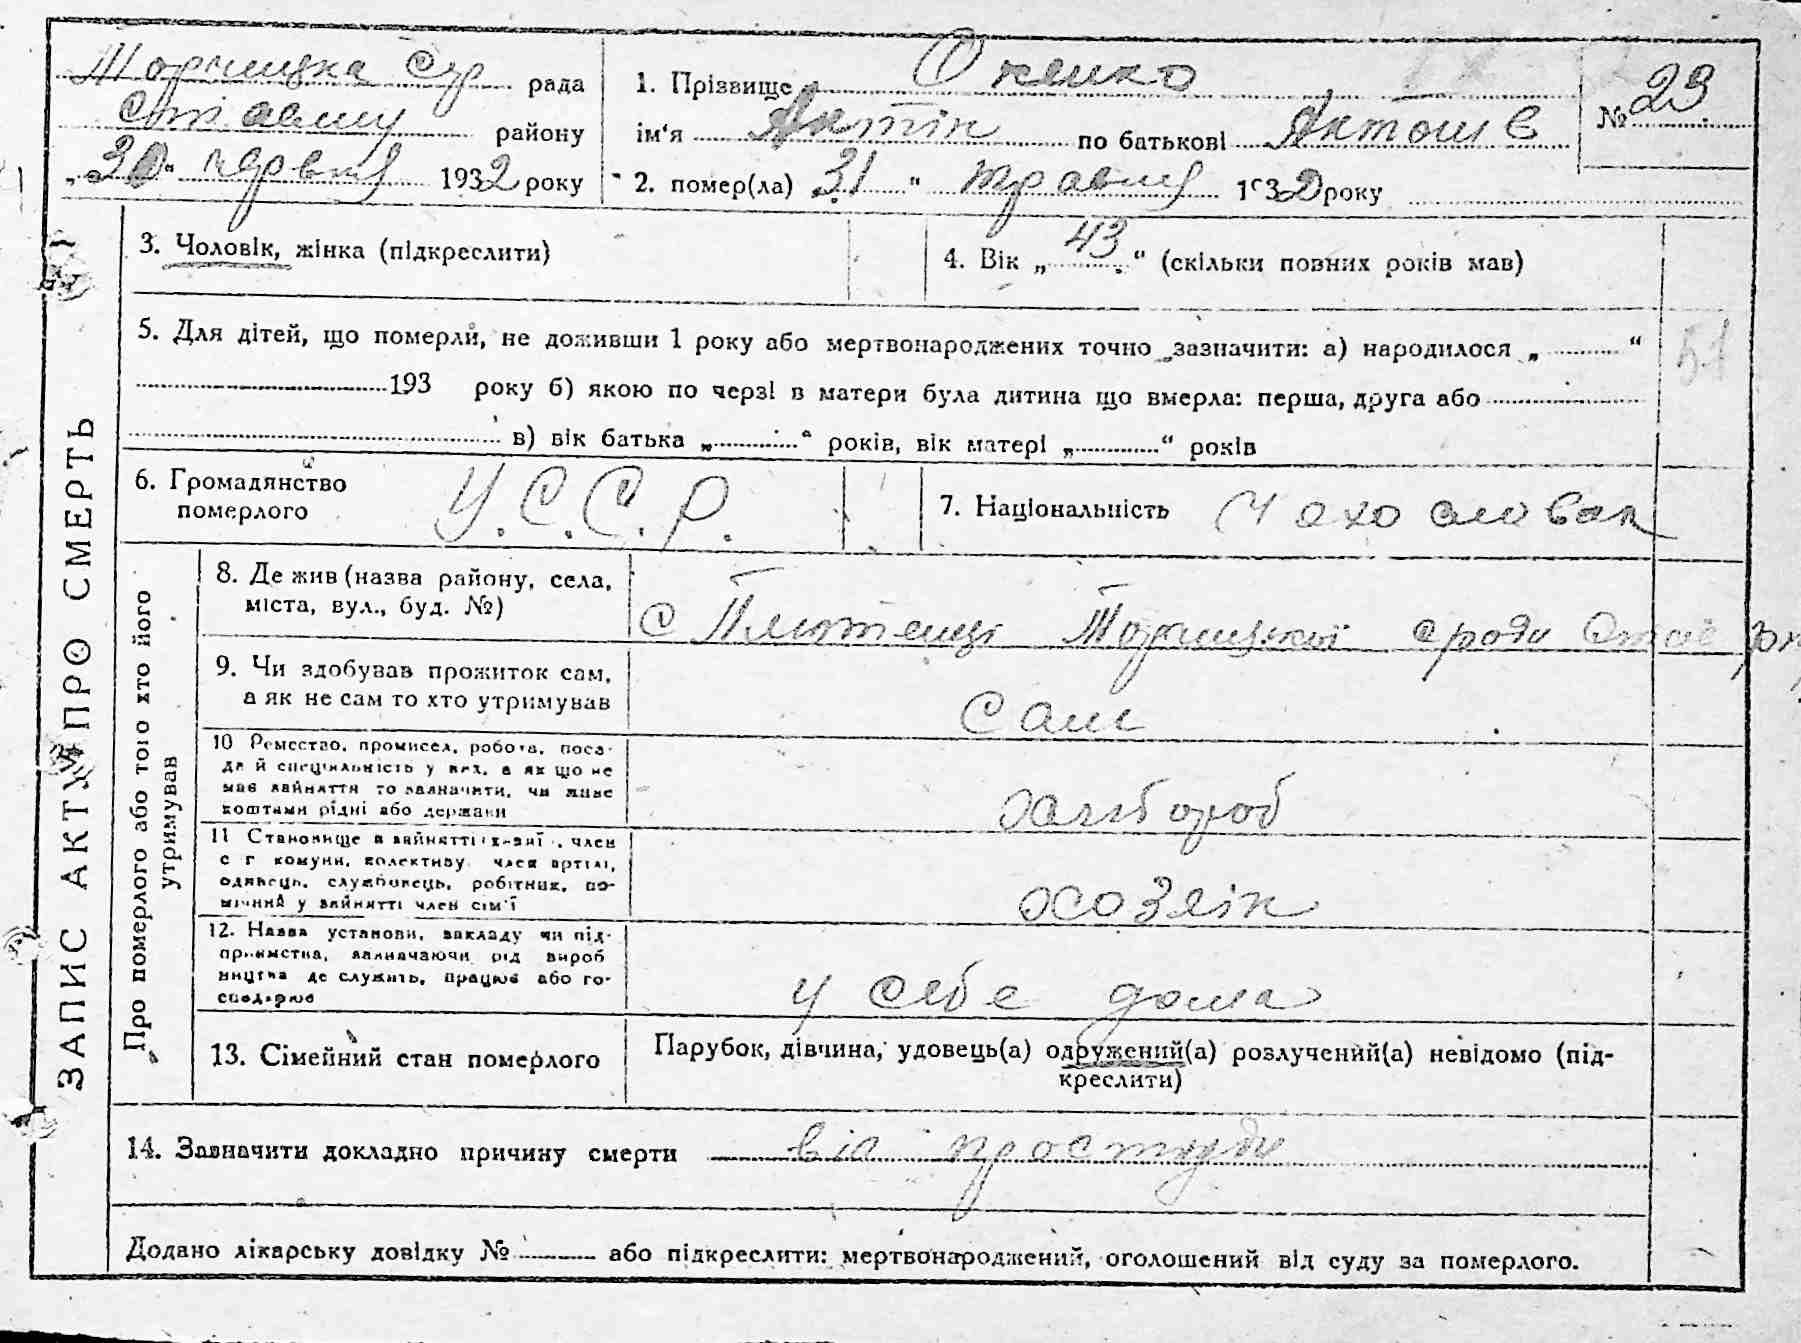 Торчицка С/р рада
Ставищ району
„30" червня 1932 року
1. Прізвище Оченко
ім'я Антін по батькові Антонів
2. помер(ла) 31 " травня 1932 року
№ 23
ЗАПИС АКТУ ПРО СМЕРТЬ
3. Чоловік, жінка (підкреслити)
4. Вік „ 43 " (скільки повних років мав)
5. Для дітей, що померли, не доживши 1 року або мертвонароджених точно зазначити: а) народилося „ "
193 року б) якою по черзі в матери була дитина що вмерла: перша, друга або
в) вік батька „ " років, вік матері „ " років
51
6. Громадянство
померлого У.С.С.Р.
7. Національність Чехословак
Про померлого або того хто його
утримував
8. Де жив (назва району, села,
міста, вул., буд. №)
с Торчицкої с/ради
9. Чи здобував прожиток сам,
а як не сам то хто утримував
сам
10 Ремество, промисел, робота, поса-
да й спеціяльність у них, а як що не
має зайняття то зазначити, чи живе
коштами рідні або держави
хлібороб
11 Становище в зайнятті член
с г комуни, колективу член артілі,
одинець, службовець, робітник, по-
мічний у зайнятті член сім'ї
хозяін
12. Назва установи, закладу чи під-
приємства, зазначаючи рід вироб
ництва де служить, працює або го-
сподарює
у себе дома
13. Сімейний стан померлого
Парубок, дівчина, удовець(а) одружений(а) розлучений(а) невідомо (під-
креслити)
14. Зазначити докладно причину смерти від простуди
Додано лікарську довідку № або підкреслити: мертвонароджений, оголошений від суду за померлого.